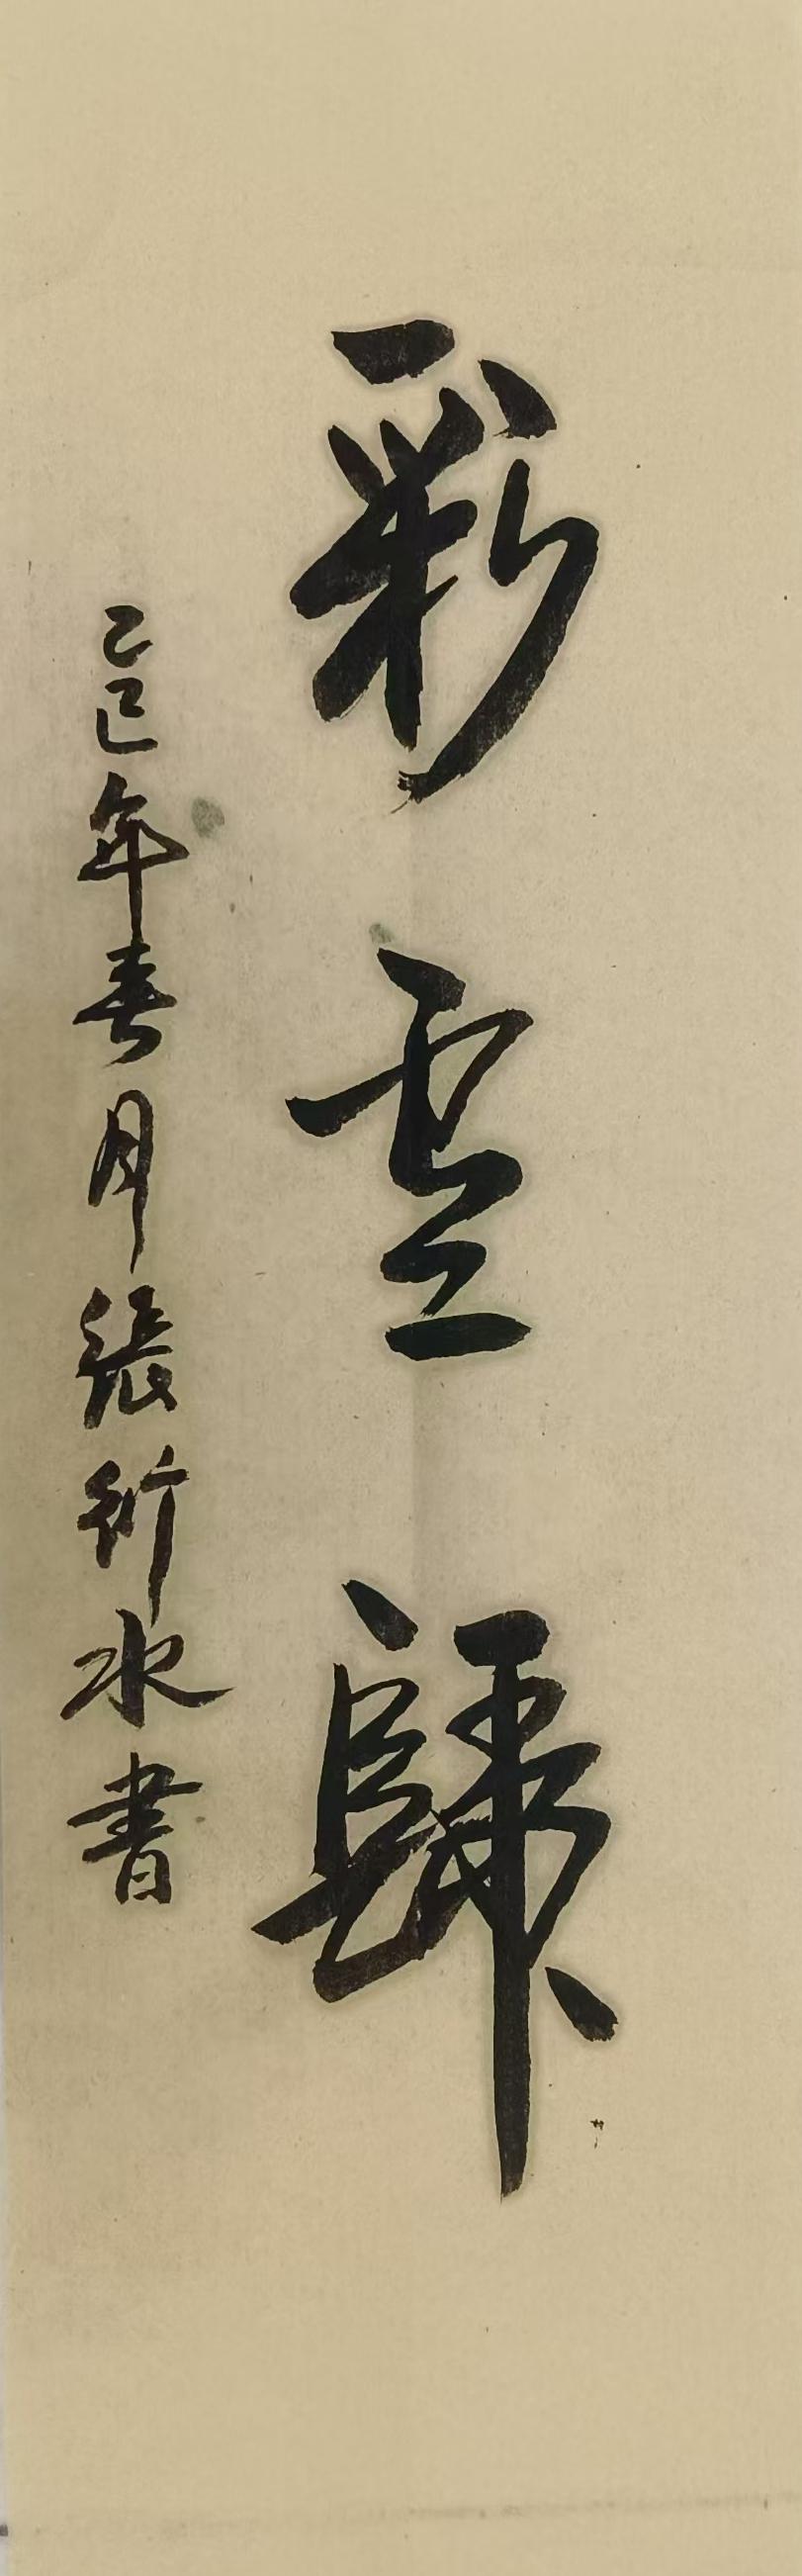 彩雲歸
乙巳年春月張竹水書